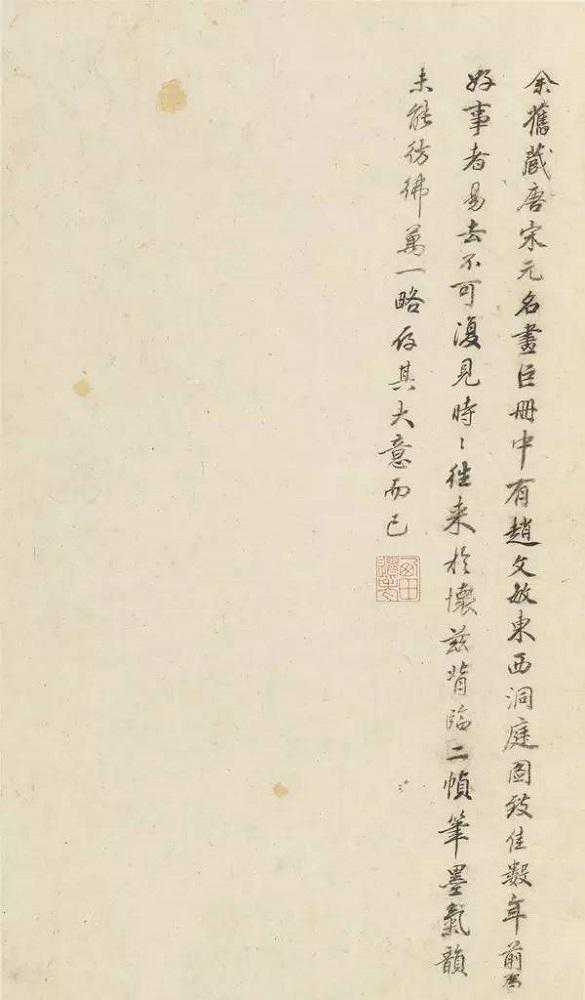 余舊藏唐宋元名畫巨冊中有趙文敏東西洞庭圖致佳數年前為
好事者易去不可復見時〻往来於懷茲背臨二幀筆墨氣韻
未能彷彿萬一略存其大意而已